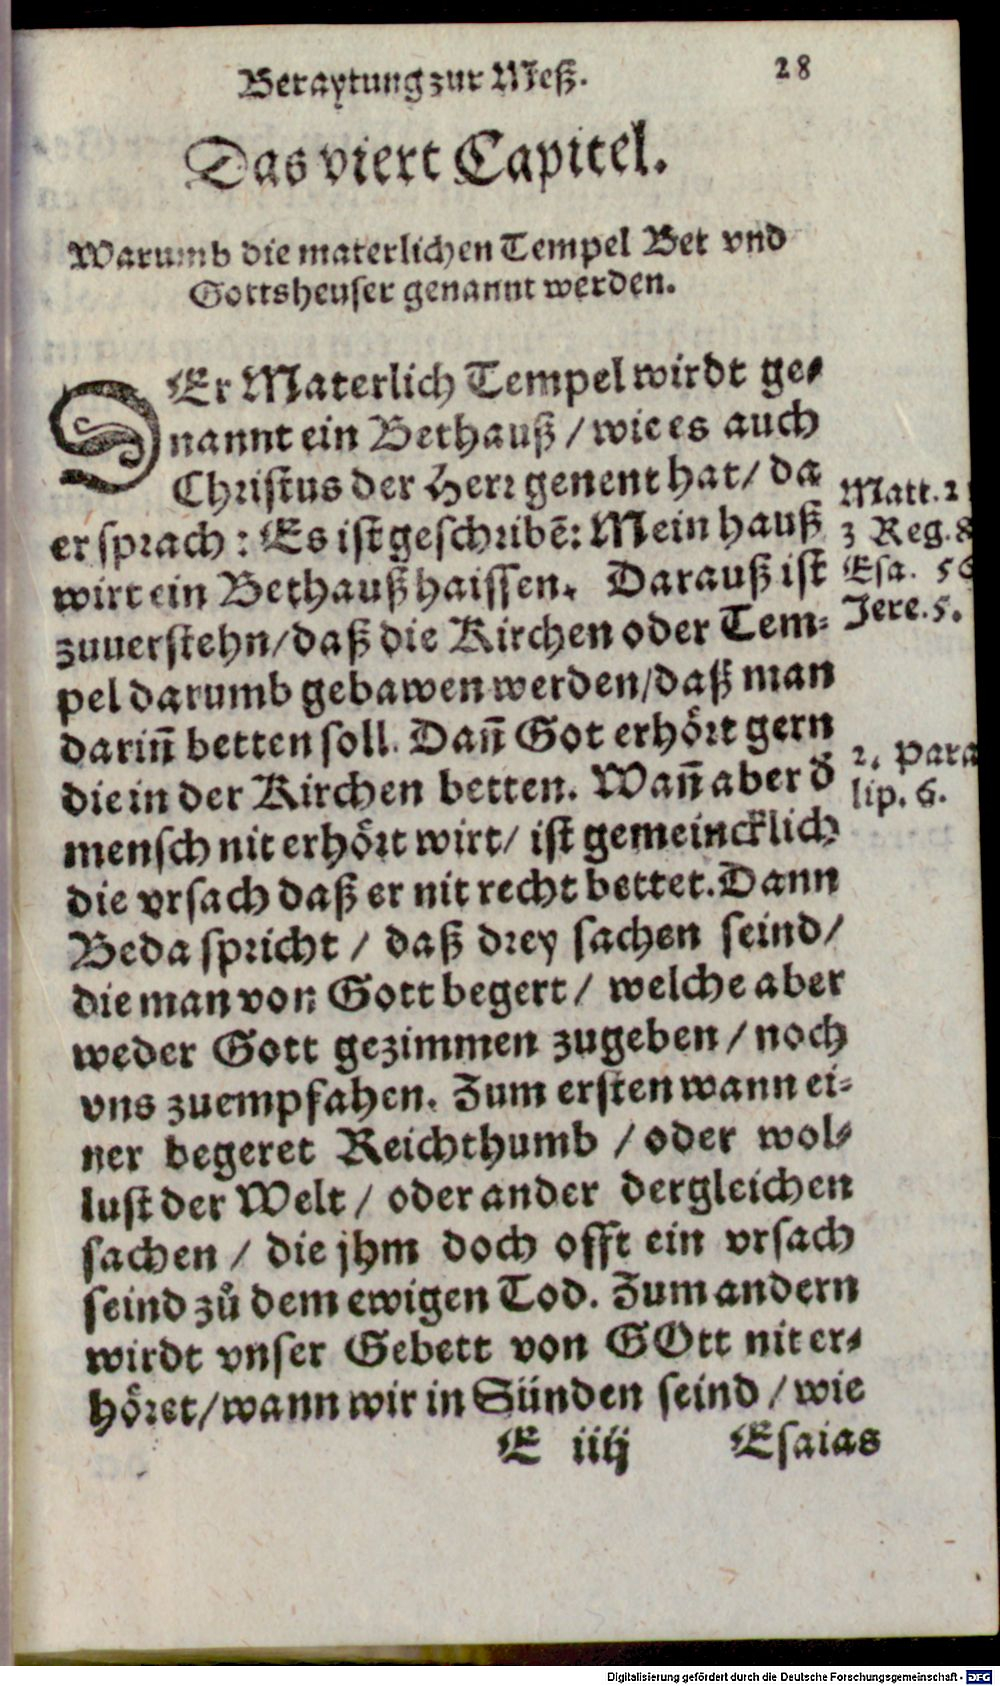 Beraytung zur Meß.
28
Das viert Capitel.
Warumb die materlichen Tempel Bet vnd
Gottsheuser genannt werden.
DEr Materlich Tempel wirdt ge-
nannt ein Bethauß / wie es auch
Christus der Herr genent hat / da
er sprach: Es ist geschribẽ: Mein hauß
wirt ein Bethauß haissen. Darauß ist
zuuerstehn / daß die Kirchen oder Tem-
pel darumb gebawen werden / daß man
darin̄ betten soll. Dan̄ Got erhoͤrt gern
die in der Kirchen betten. Wan̄ aber d̄
mensch nit erhoͤrt wirt / ist gemeincklich
die vrsach daß er nit recht bettet. Dann
Beda spricht / daß drey sachen seind /
die man von Gott begert / welche aber
weder Gott gezimmen zugeben / noch
vns zuempfahen. Zum ersten wann ei-
ner begeret Reichthumb / oder wol-
lust der Welt / oder ander dergleichen
sachen / die jhm doch offt ein vrsach
seind zů dem ewigen Tod. Zum andern
wirdt vnser Gebett von GOtt nit er-
hoͤret / wann wir in Sünden seind / wie
E iiij Esaias
Matt. 21
3 Reg. 8
Esa. 56
Jere. 5.
2. Para
lip. 6.
Digitalisierung gefördert durch die Deutsche Forschungsgemeinschaft - DFG